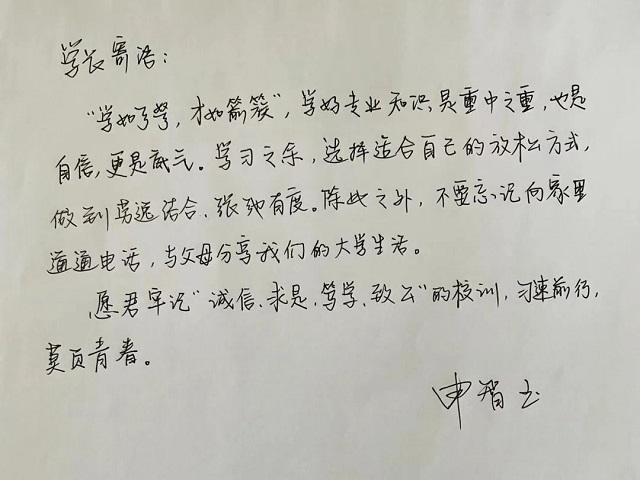 学长寄语：
“学如弓弩，才如箭簇”，学好专业知识是重中之重，也是
自信，更是底气。学习之余，选择适合自己的放松方式，
做到劳逸结合、张弛有度。除此之外，不要忘记向家里
通通电话，与父母分享我们的大学生活。
愿君牢记“诚信、求是、笃学、致公”的校训，匀速前行，
莫负青春。
申智